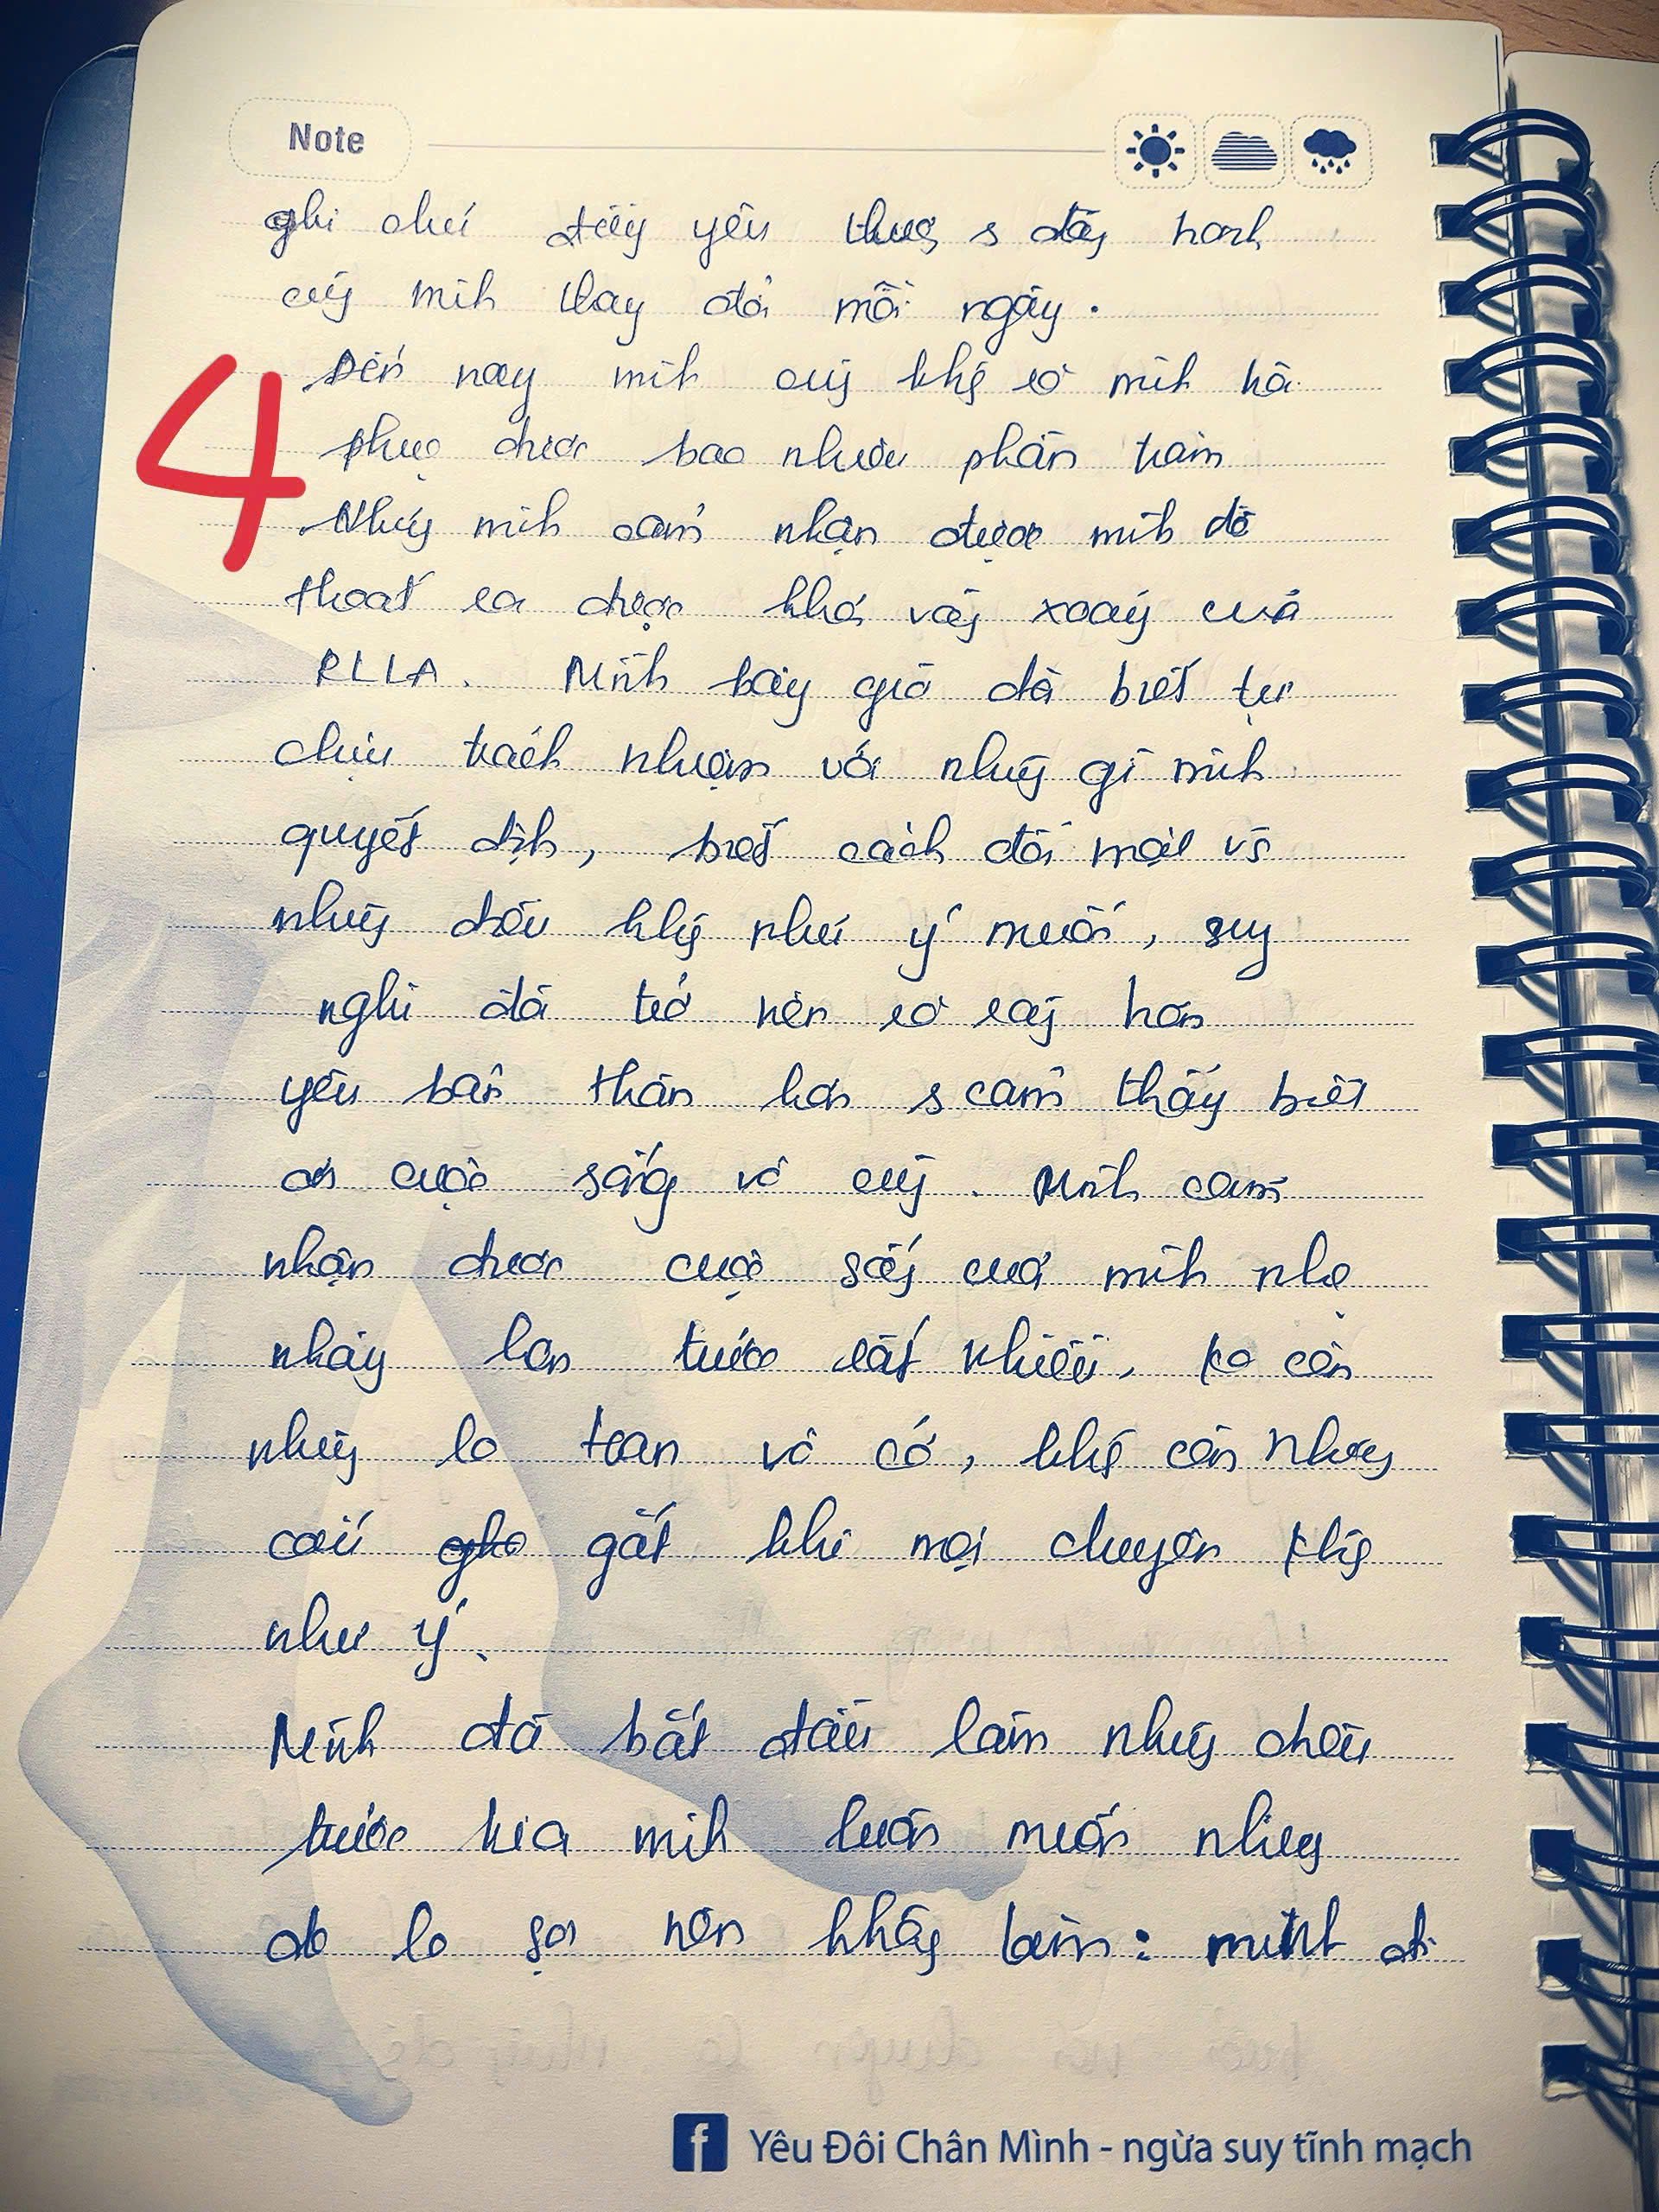 Note
ghi chú đầy yêu thương s đồng hành
cùng mình thay đổi mỗi ngày.
Đến nay mình cũng không rõ mình hồi
phục được bao nhiêu phần trăm
Nhưng mình cảm nhận được mình đã
4
thoát ra được khỏi vòng xoáy của
RLLA. Mình bây giờ đã biết tự
chịu trách nhiệm với những gì mình
quyết định, biết cách đối mặt vs
những điều không như ý muốn, suy
nghĩ đã trở nên rõ ràng hơn
yêu bản thân hơn s cảm thấy biết
ơn cuộc sống vô cùng. Mình cảm
nhận được cuộc sống của mình nhẹ
nhàng hơn trước rất nhiều, ko còn
những lo toan vô cớ, không còn những
cáu gắt khi mọi chuyện không
như ý.
Mình đã bắt đầu làm những điều
trước kia mình luôn muốn nhưng
do lo sợ nên không làm: mình đi
Yêu Đôi Chân Mình - ngừa suy tĩnh mạch